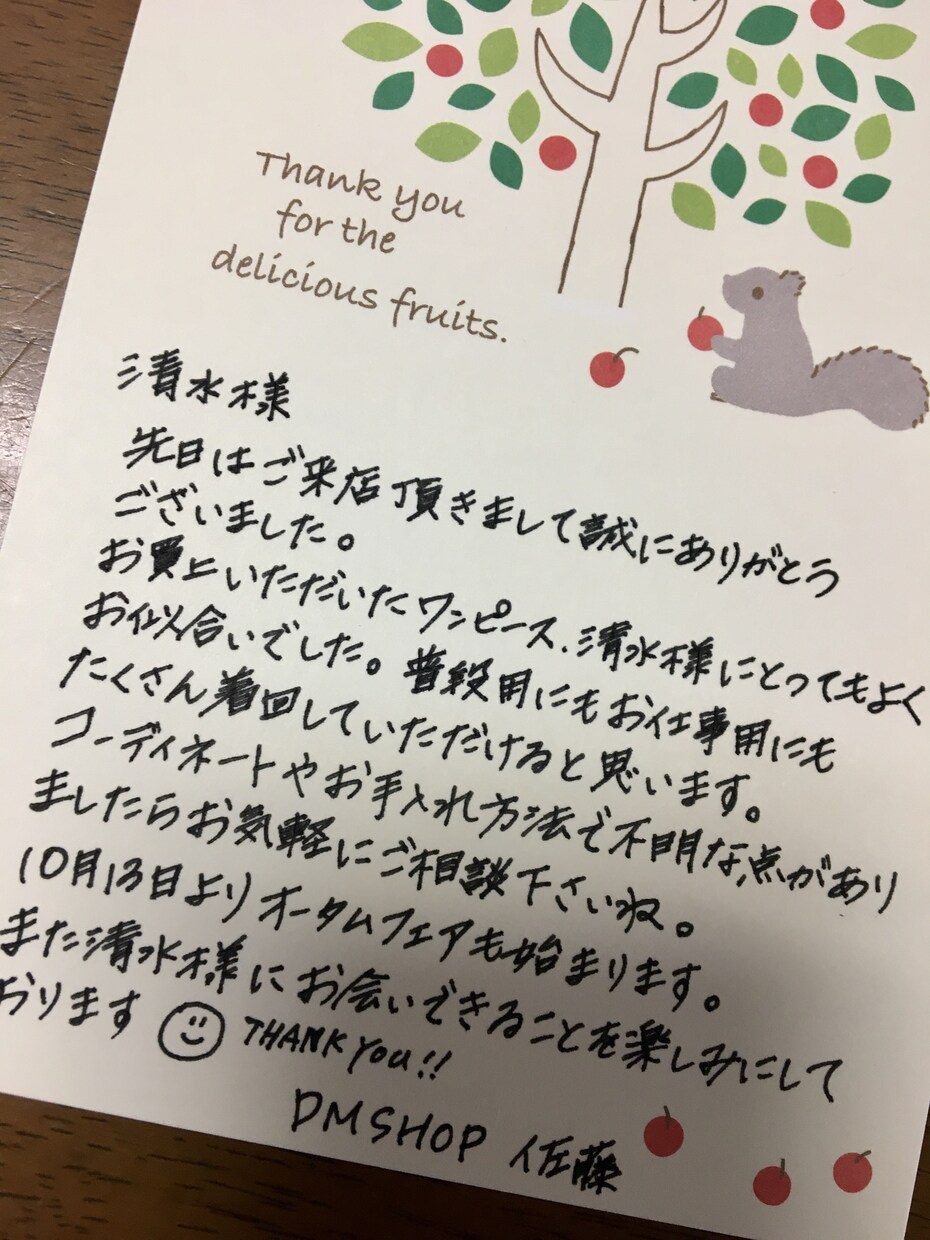 Thank you
for the
delicious fruits.
清水様
先日はご来店頂きまして誠にありがとう
ございました。
お買上いただいたワンピース、清水様にとってもよく
お似合いでした。普段用にもお仕事用にも
たくさん着回していただけると思います。
コーディネートやお手入れ方法で不明な点があり
ましたらお気軽にご相談下さいね。
10月13日よりオータムフェアも始まります。
また清水様にお会いできることを楽しみにして
おります THANK YOU!!
DMSHOP 佐藤